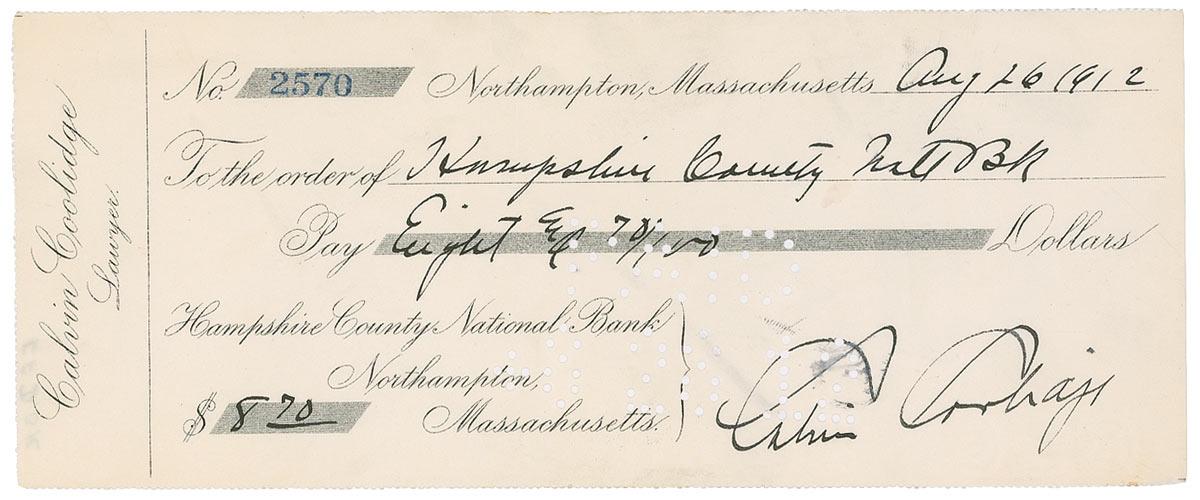 Calvin Coolidge
Lawyer.
No. 2570 Northampton, Massachusetts Aug 26 1912
To the order of Hampshire County Natl Bk
Pay Eight & 70/100 Dollars
Hampshire County National Bank
Northampton,
$ 8 70 Massachusetts.
Calvin Coolidge